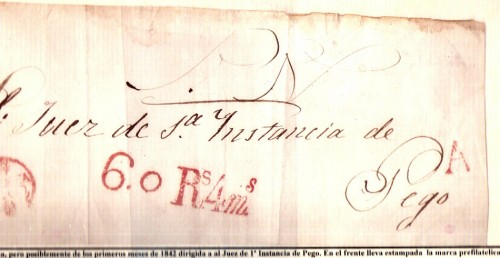 S. N.
Sr. Juez de 1ª Instancia de
Pego
A
6.0 Rs 4 ms
a, pero posiblemente de los primeros meses de 1842 dirigida a al Juez de 1ª Instancia de Pego. En el frente lleva estampada la marca prefilatelica